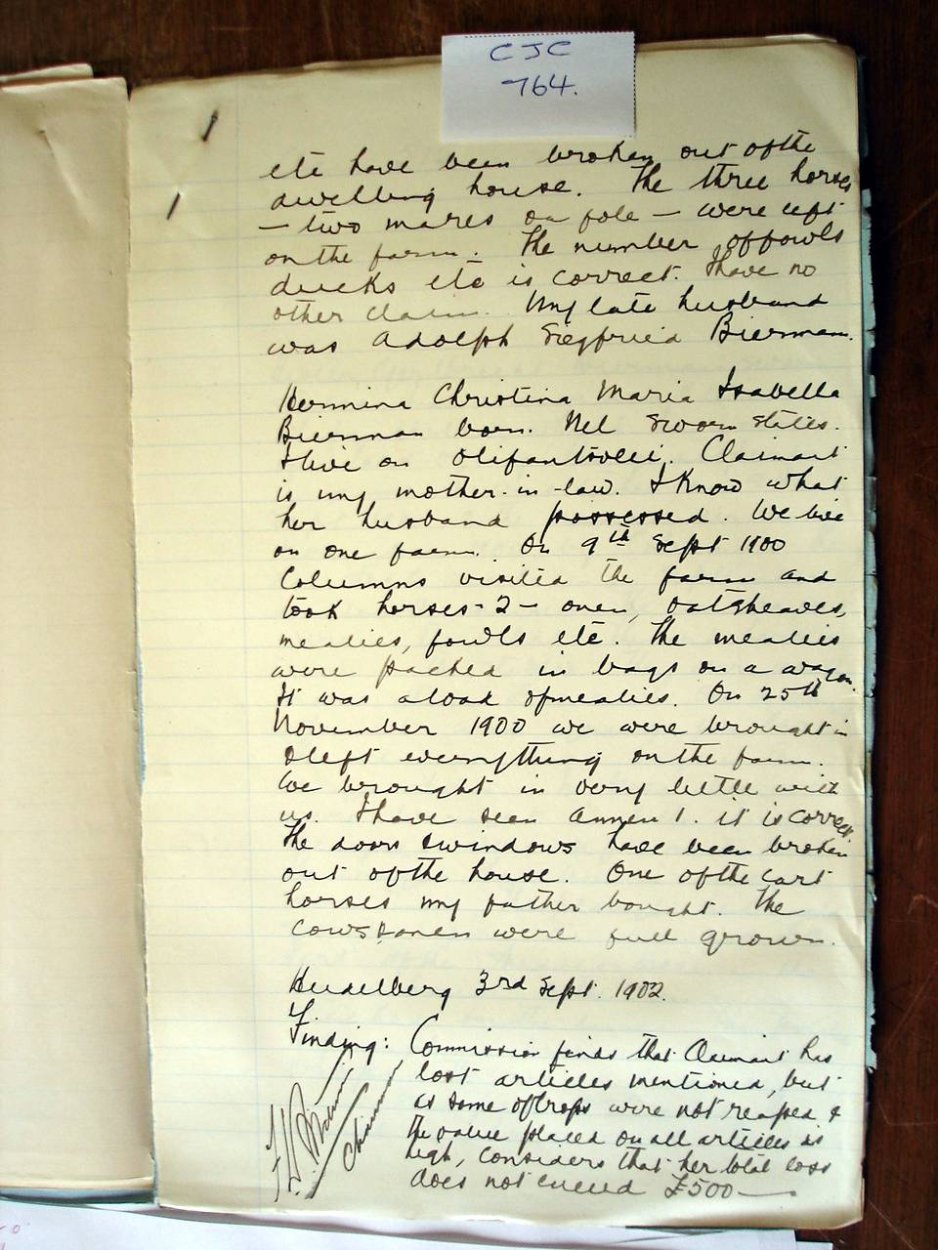 CJC
764.
etc have been broken out of the
dwelling house. The three horses
— two mares one fole — were left
on the farm. The number of fowls
ducks etc is correct. I have no
other claim. My late husband
was Adolph Siegfried Bierman.
Hermina Christina Maria Isabella
Bierman born Nel sworn states.
I live on Olifantsvlei. Claimant
is my mother-in-law. I know what
her husband possessed. We live
on one farm. On 9th Sept 1900
Columns visited the farm and
took horses - 2 - oxen, oatsheaves,
mealies, fowls etc. The mealies
were packed in bags on a wagon.
It was a load of mealies. On 25th
November 1900 we were brought in
& left everything on the farm.
We brought in very little with
us. I have seen Annex 1. it is correct.
The doors & windows have been broken
out of the house. One of the cart
horses my father bought. The
cows & oxen were full grown.
Heidelberg 3rd Sept. 1902.
Finding: Commission finds that Claimant has
lost articles mentioned, but
as some of crops were not reaped &
the value placed on all articles is
high, considers that her total loss
does not exceed £500 —
Chairman